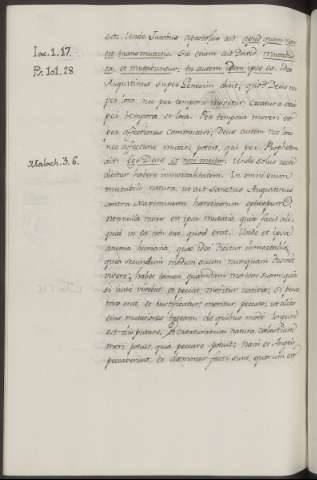 est. Unde Iacobus Apostolus ait apud quem non
Iac. 1. 17. est transmutatio. Sic enim ait David mutabis
Ps. 101. 28. ea, et mutabuntur; tu autem idem ipse es. Ideo
Augustinus super Genesim dicit, quod Deus nec
per loca nec per tempora movetur. Creatura autem
per tempora et loca. Per tempora moveri est
per affectiones commutari. Deus autem nec loco
nec affectione mutari potest, qui per Prophetam
Malach. 3. 6. ait: Ego Deus et non mutor. Unde solus recte
dicitur habere immortalitatem. In omni enim
mutabili natura, ut ait sanctus Augustinus
contra Maximinum haereticorum episcopum,
nonnulla mors est ipsa mutatio, quia facit ali
quid in ea non esse, quod erat. Unde et ipsa
anima humana, quae ideo dicitur immortalis
quia secundum modum suum nunquam desinit
vivere; habet tamen quandam mortem suam, quia
si iuste vivebat, et peccat, moritur iustitiae, si pecca
trix erat, et iustificatur, moritur peccato; ut alias
eius mutationes taceam, de quibus modo longum
est disputare. Et creaturarum natura coelestium
mori potuit, quia peccare potuit; nam et Angeli
peccaverunt, et daemones facti sunt, quorum est